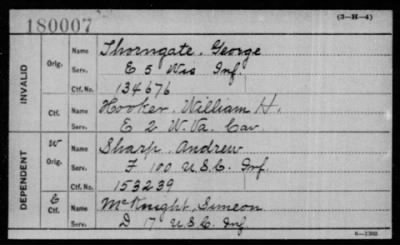 180007
(3-H-4)
INVALID
Orig.
Name Thorngate, George
Serv. E 5 Wis Inf.
Ctf. No. 134676
Ctf.
Name Hooker, William H.
Serv. E 2 W. Va. Cav.
DEPENDENT
W
Orig.
Name Sharp, Andrew
Serv. F 100 U.S.C. Inf.
Ctf. No. 153239
Ctf.
Name McKnight, Simeon
Serv. D 17 U.S.C. Inf